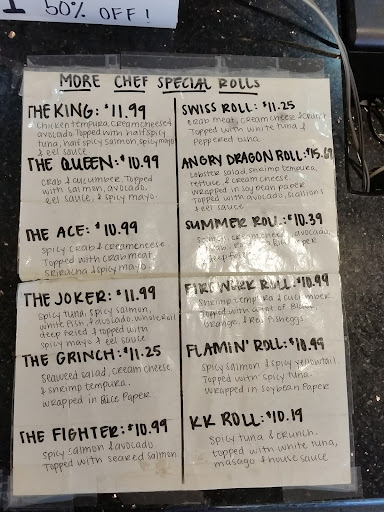 50% OFF!
MORE CHEF SPECIAL ROLLS
THE KING: $11.99
Chicken tempura, creamcheese &
avocado. Topped with half spicy
tuna, half spicy salmon, spicy mayo
& eel sauce
THE QUEEN: $10.99
Crab & cucumber. Topped
with salmon, avocado,
eel sauce, & spicy mayo.
THE ACE: $10.99
Spicy crab & creamcheese
Topped with crabmeat,
sriracha & spicy mayo
THE JOKER: $11.99
Spicy tuna, spicy salmon,
white fish, & avocado. whole roll
deep fried & topped with
spicy mayo & eel sauce
THE GRINCH: $11.25
Seaweed salad, cream cheese
& shrimp tempura.
wrapped in Rice Paper
THE FIGHTER: $10.99
Spicy salmon & avocado
Topped with seared salmon
SWISS ROLL: $11.25
Crab meat, creamcheese & crunch
Topped with white tuna &
peppered tuna.
ANGRY DRAGON ROLL: $15.
Lobster salad, shrimp tempura,
lettuce & creamcheese.
wrapped in soybean paper
Topped with avocado, scallions
& eel sauce
SUMMER ROLL: $10.39
creamcheese, avocado,
Paper
deep fried
FIREWORK ROLL: $10.99
Shrimp tempura & cucumber
Topped with a lot of Black,
Orange, & Red fisheggs
FLAMIN' ROLL: $10.99
Spicy salmon & spicy yellowtail
Topped with spicy tuna.
wrapped in Soybean Paper
KK ROLL: $10.19
Spicy tuna & crunch.
topped with white tuna,
masago & house sauce